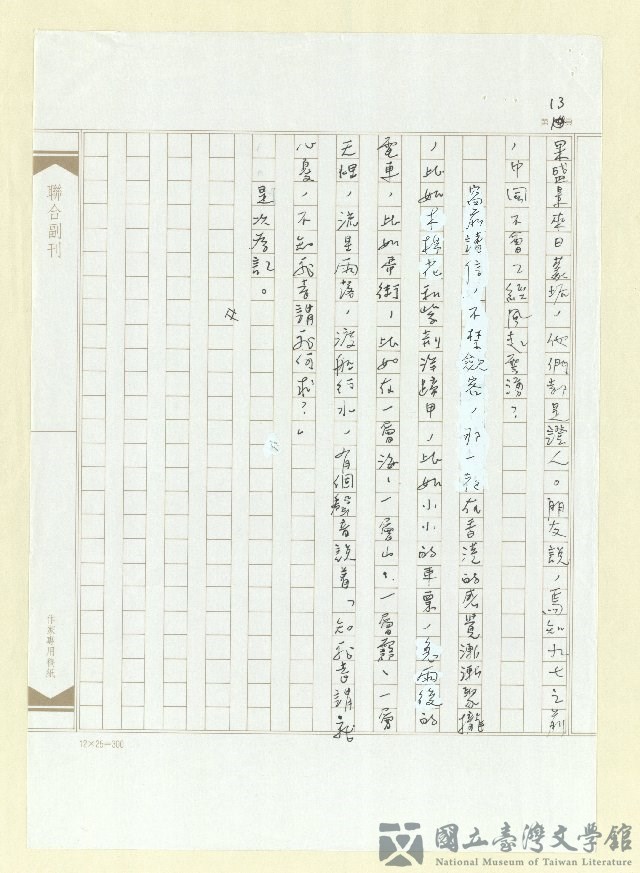 13
果盛景在日蒙垢，他們都是證人。朋友說，焉知九七之前
，中國不會又經風起雲湧？
窗前讀信，不禁
，那一夜在香港的感覺漸漸聚攏
，比如木棉花和紫荊洋蹄甲，比如小小的車票，急雨後的
電車，比如帝街，比如在一層海、一層山、一層霧、一層
天裡，流星雨落，渡船行水，有個聲音說著「知我者謂我
心憂，不知我者謂我何求？」
是次為記。
聯合副刊
作家專用稿紙
12×25=300
國立臺灣文學館
National Museum of Taiwan Literature